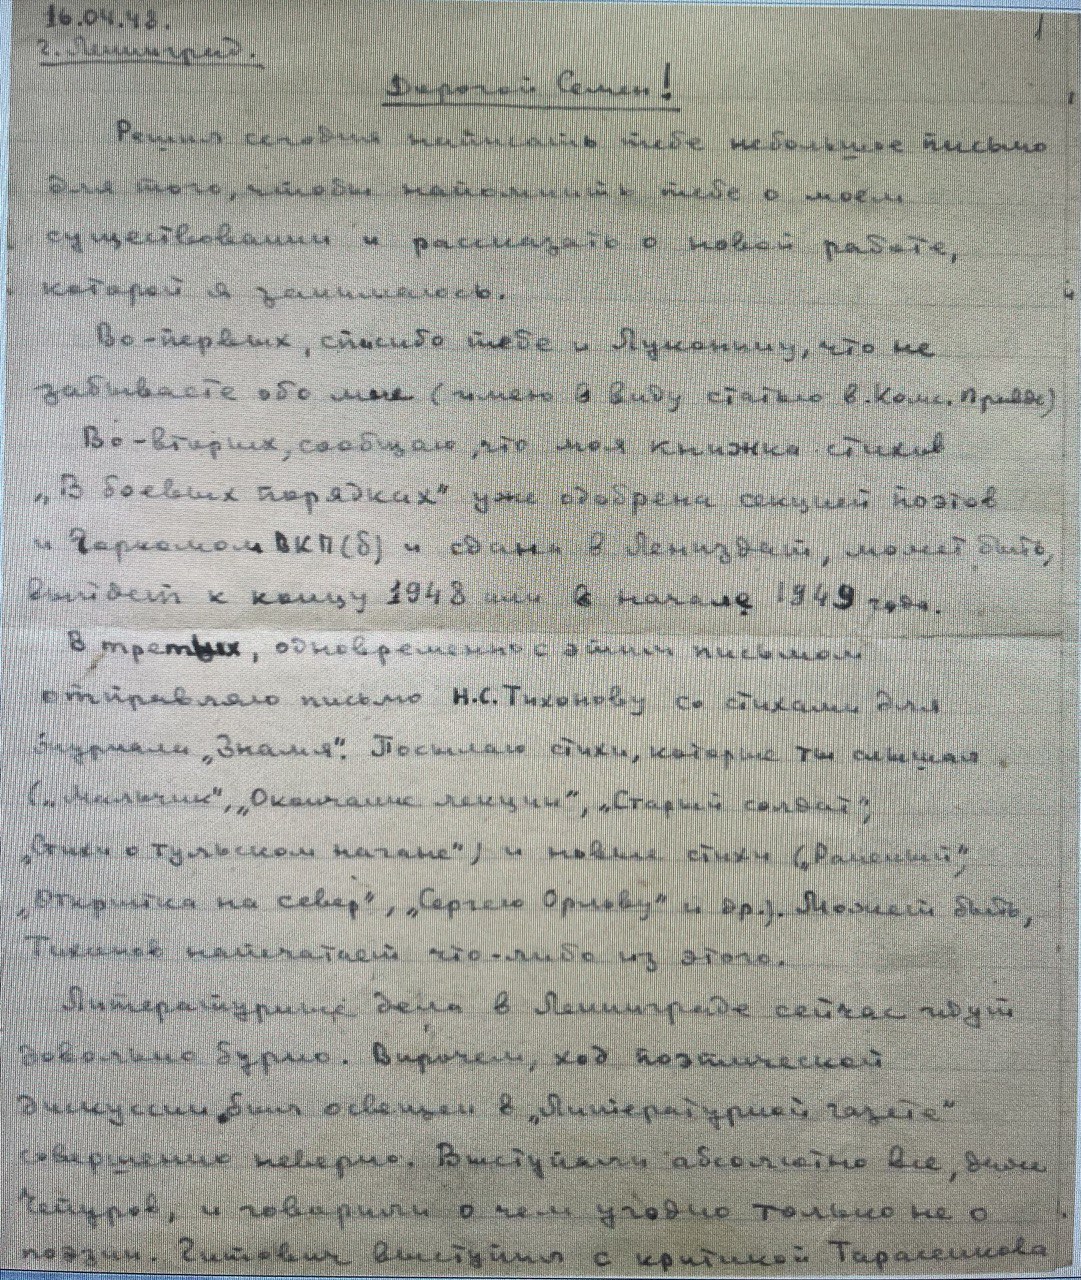 16.04.48.
1
г. Ленинград.
Дорогой Семен!
Решил сегодня написать тебе небольшое письмо
для того, чтобы напомнить тебе о моем
существовании и рассказать о новой работе,
которой я занимаюсь.
Во-первых, спасибо тебе и Луконину, что не
забываете обо мне (имею в виду статью в. Комс. Правде)
Во-вторых, сообщаю, что моя книжка стихов
„В боевых порядках" уже одобрена секцией поэтов
и Горкомом ВКП(б) и сдана в Лениздат, может быть,
выйдет к концу 1948 или в начале 1949 года.
В третьих, одновременно с этим письмом
отправляю письмо Н.С. Тихонову со стихами для
журнала „Знамя". Посылаю стихи, которые ты слышал
(„Мальчик", „Окончание лекции", „Старый солдат",
„Стихи о тульском нагане") и новые стихи („Раненый",
„Открытка на север", „Сергею Орлову" и др.). Может быть,
Тихонов напечатает что-либо из этого.
Литературные дела в Ленинграде сейчас идут
довольно бурно. Впрочем, ход поэтической
дискуссии был освещен в „Литературной газете"
совершенно неверно. Выступали абсолютно все, даже
Чепуров, и говорили о чем угодно только не о
поэзии. Гитович выступил с критикой Тарасенкова